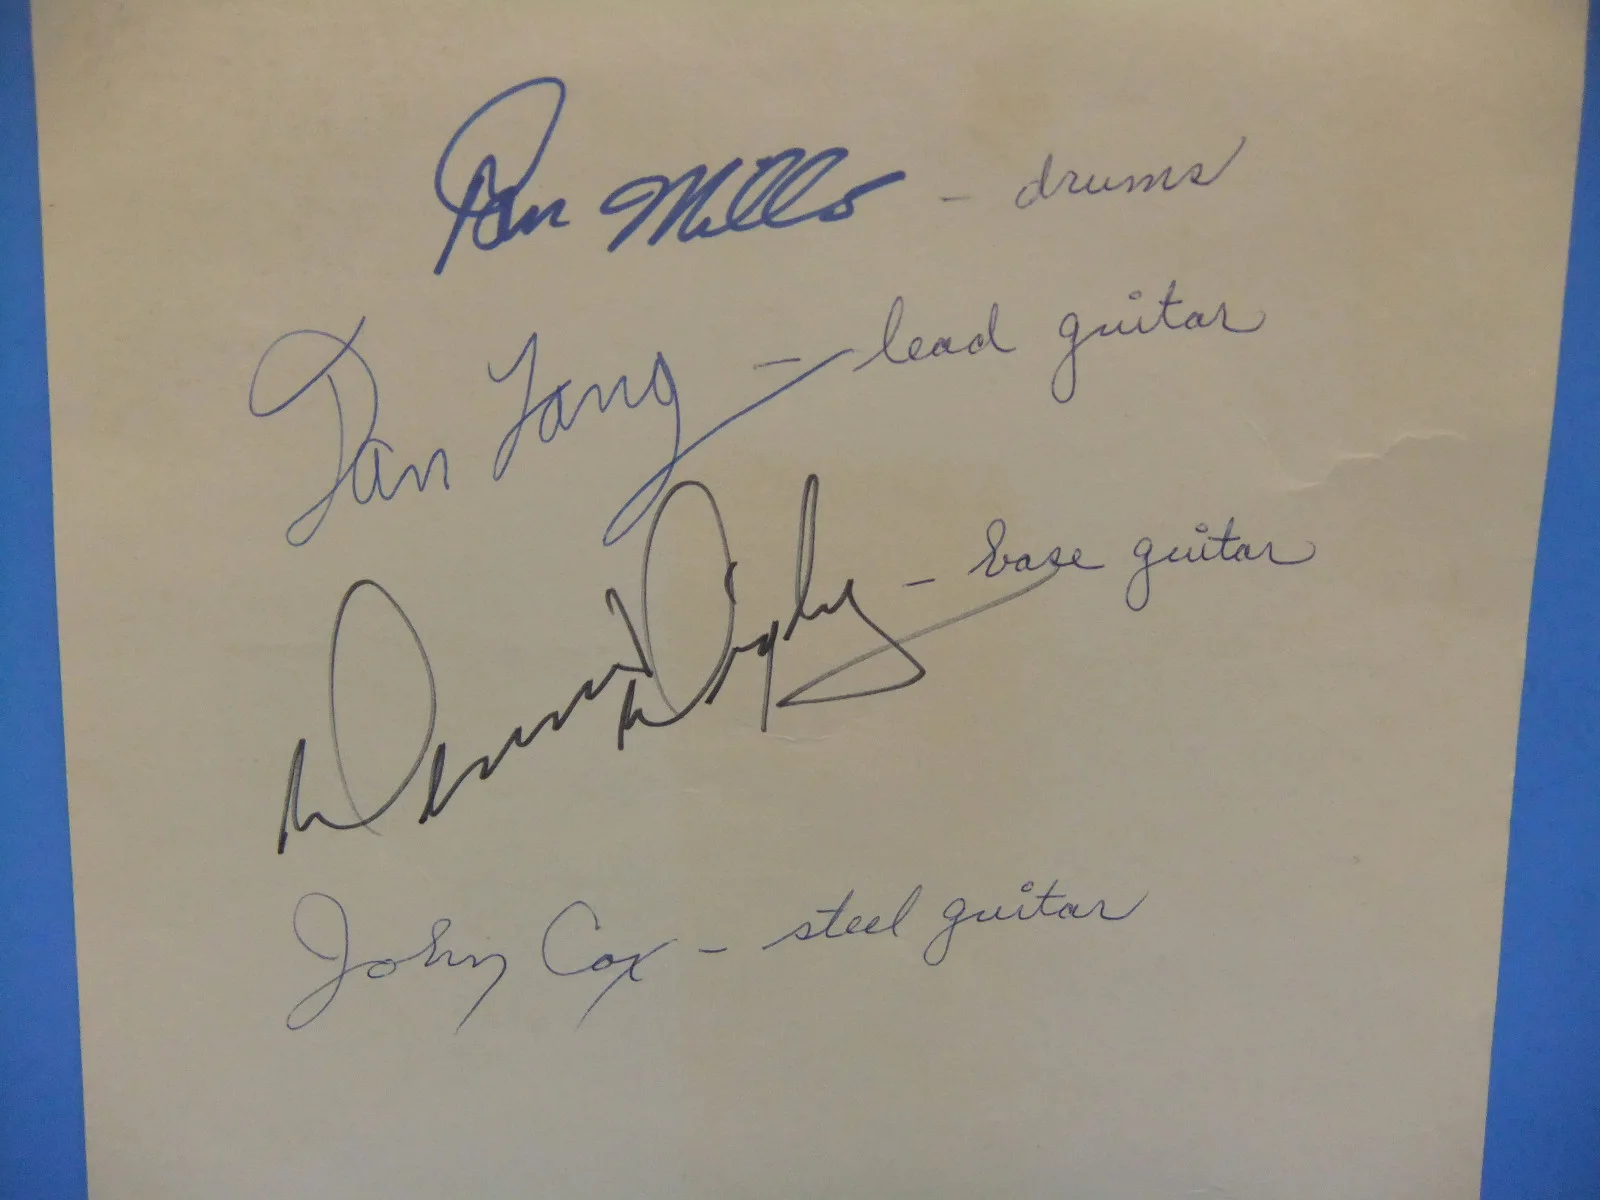 Mills - drums
Dan - lead guitar
Dennis Digby - base guitar
Johny Cox - steel guitar